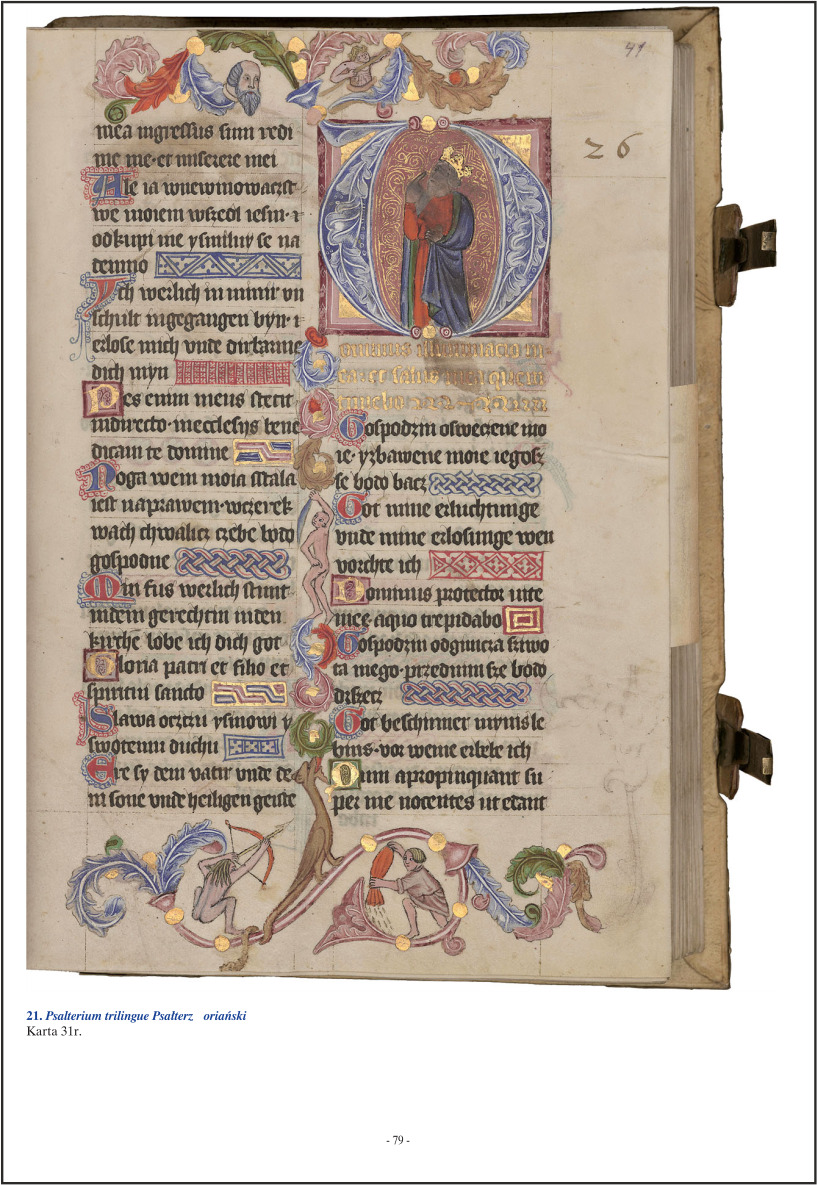 41
26
mea ingressus sum redi
me me·et miserere mei
Ale ia wnewinowaczst
we moiem wszedl iesm·i
odkupi me ysmiluy se na
demno
Ich werlich in minir vn
schult ingegangen byn·i
erlose mich vnde dirbarme
dich myn
Pes enim meus stetit
indirecto·inecclesijs bene
dicam te domine
Noga wem moia stala
iest naprawem·wczerek
wach chwalicz czebe bodo
gospodne
Min fus werlich stunt
indem gerechtin inden
kirche lobe ich dich got
Gloria patri et filio et
spiritui sancto
Slawa oczczu ysinowi y
swotemu duchu
Ere sy dem vatir vnde de
m sone vnde heiligen geiste
Dominus illuminacio m
ea·et salus mea quem
timebo
Gospodzin oswecene mo
ie·yzbawene moie iegosz
se bodo bacz
Got mine erluchtinige
vnde mine erlosunge wen
vorchte ich
Dominus protector vite
mee·aquo trepidabo
Gospodzin odgimcza sziwo
ta mego·przednimsze bodo
drszecz
Got beschirmer mymis le
bins·vor weme erbebe ich
Dum apropinquant su
per me nocentes ut edant
21. Psalterium trilingue Psałterz oriański
Karta 31r.
- 79 -